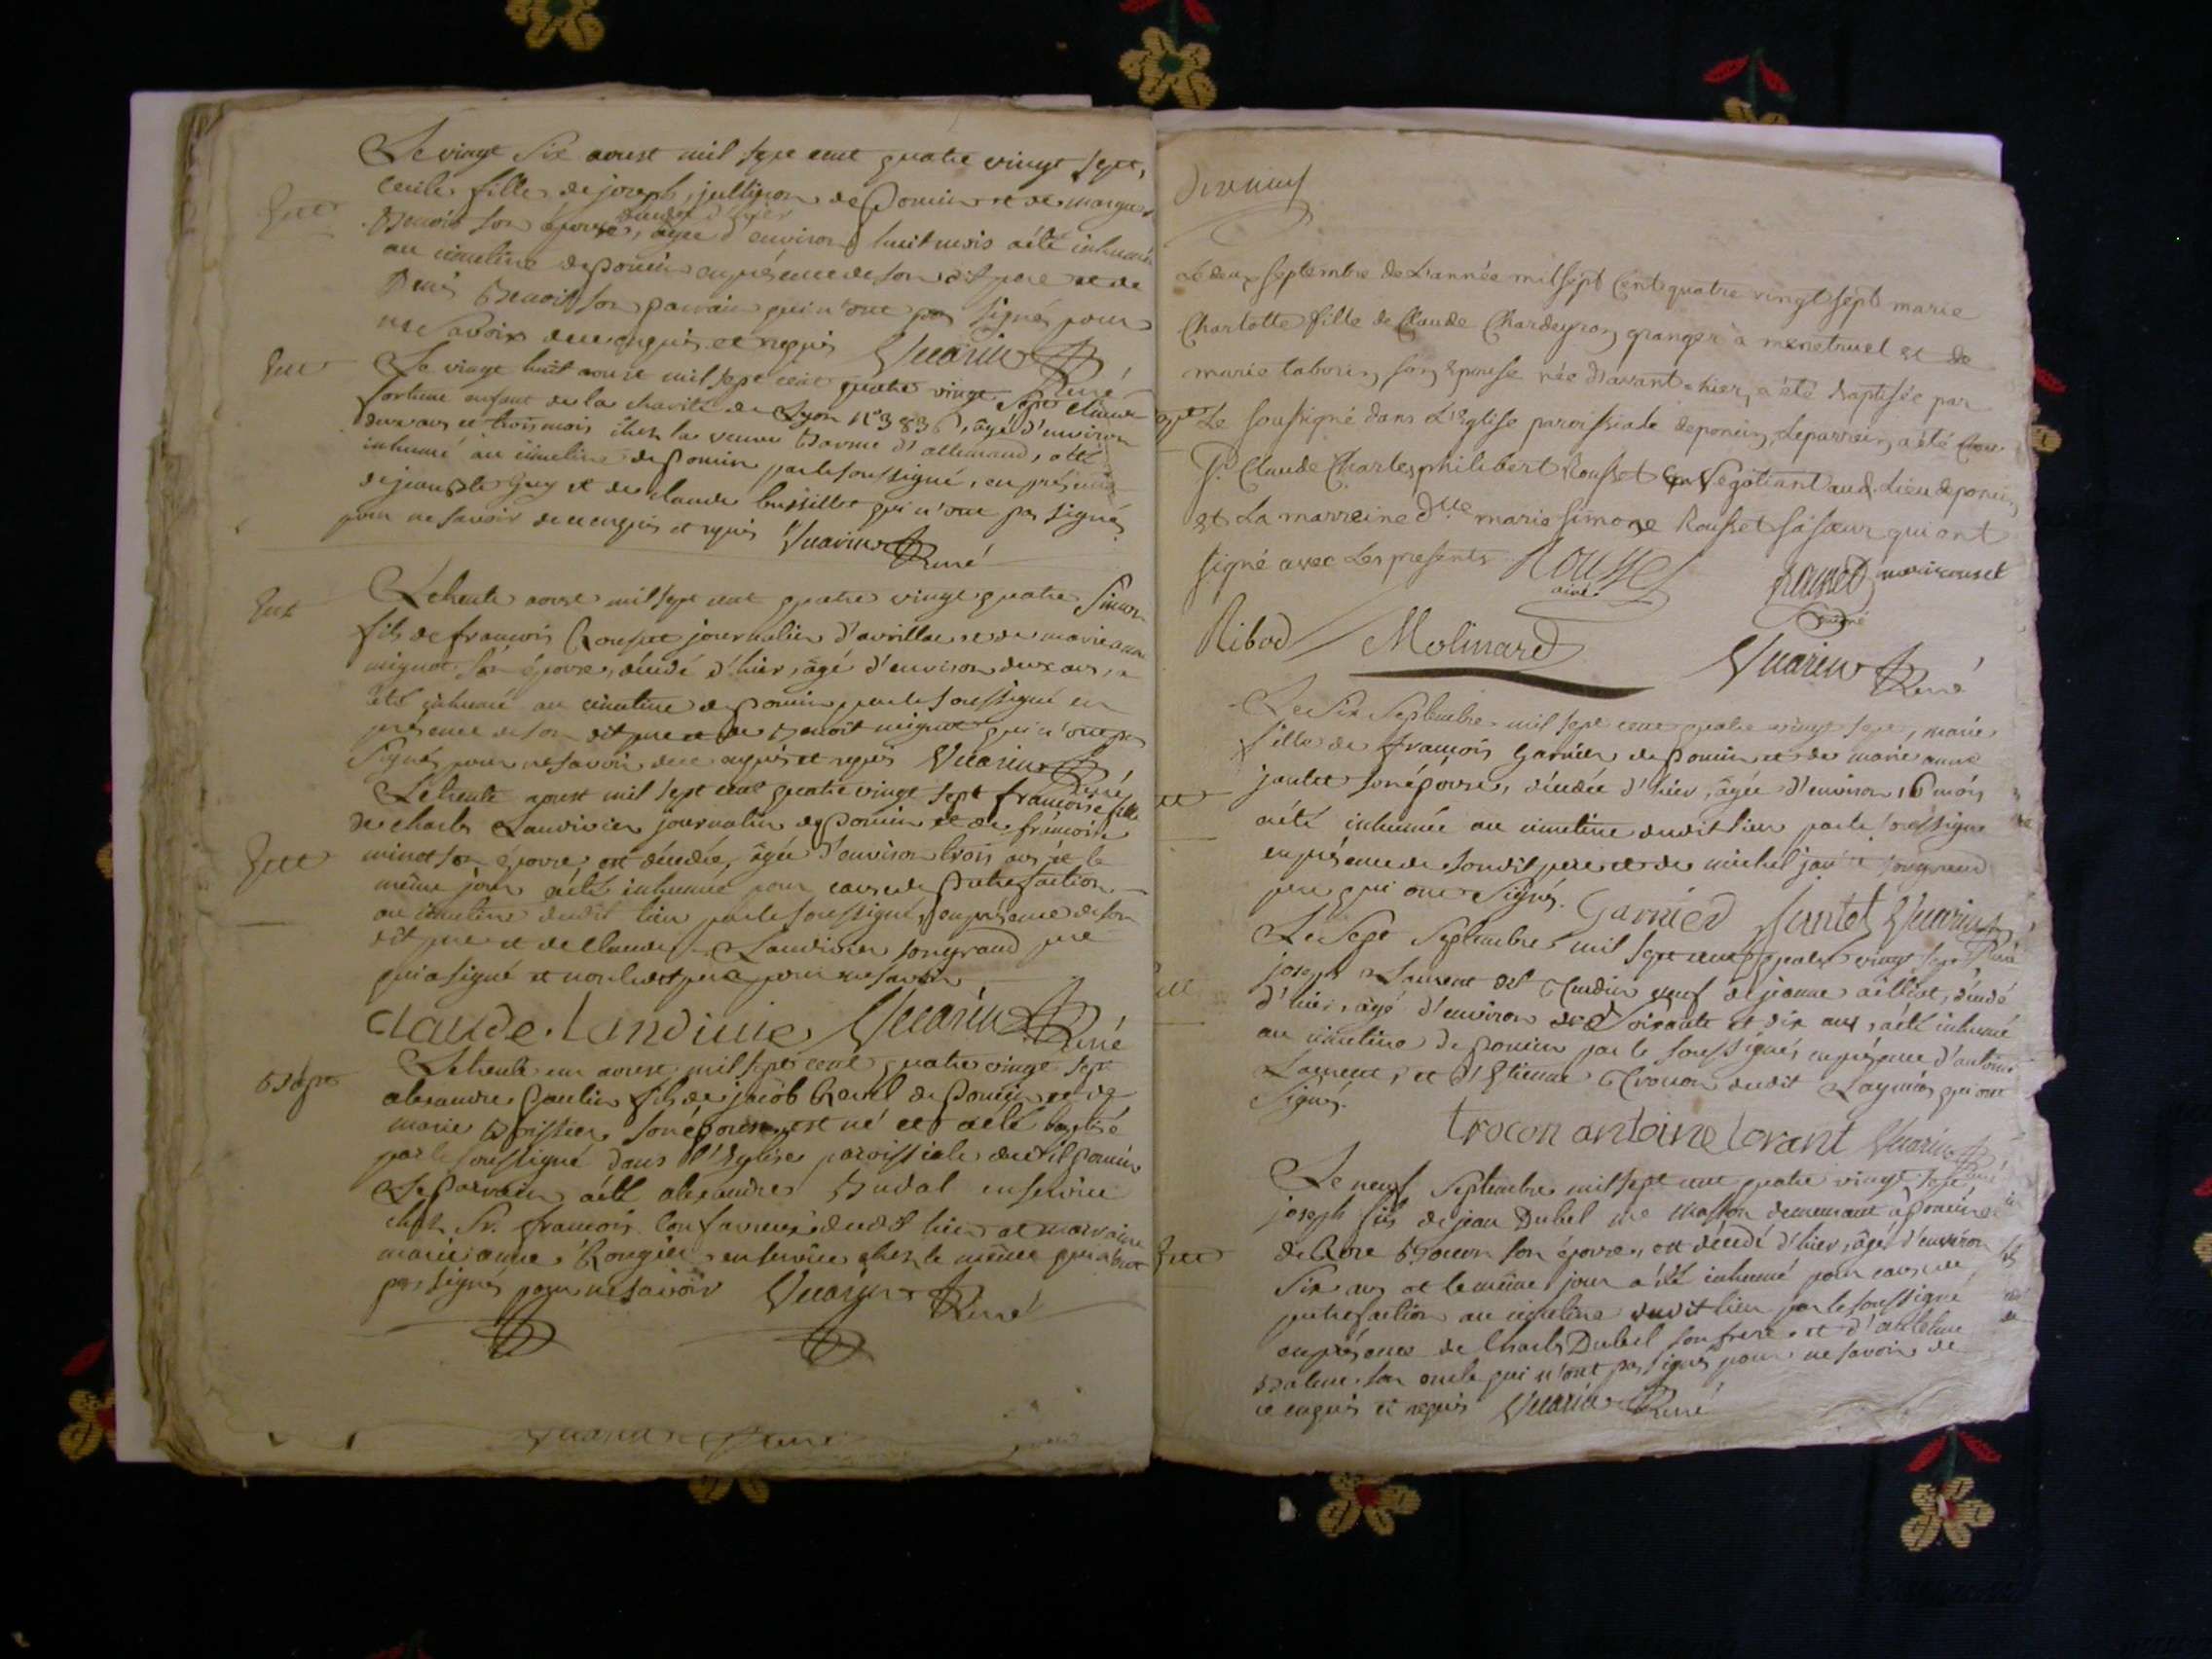 Le vingt six aoust mil sept cent quatre vingt sept,
Ent
Cecile fille de joseph jullignon de Poncin et de margueritte
Benoit son épouse, décédée d'hier âgée d'environ huit mois a été inhumée
au cimetiere de poncin en présence de son dit pere et de
Denis Benoit son parrain qui n'ont pas signés pour
ne savoir de ce enquis et requis Vuarin Curé
Ent
Le vingt huit aoust mil sept cent quatre vingt sept Claude
fortune enfant de la charité de Lyon n° 3836, âgé d'environ
deux ans et trois mois chez la veuve d'allemand, a été
inhumé au cimetiere de Poncin par le soussigné, en présence
de jean Bte Guy et de claude bussillet qui n'ont pas signés
pour ne savoir de ce enquis et requis Vuarin Curé
Ent
Le trente aoust mil sept cent quatre vingt quatre Simon
fils de francois Rousset journalier d'avrillat et de marie anne
mignot son épouse, décédé d'hier, âgé d'environ deux ans, a
été inhumé au cimetiere de poncin par le soussigné en
présence de son dit pere et de Benoit mignot qui n'ont pas
signés pour ne savoir de ce enquis et requis Vuarin Curé
Ent
Le trente aoust mil sept cent quatre vingt sept francoise fille
de charles Landivier journalier de Poncin et de francoise
minet son épouse est décédée, âgée d'environ trois ans et le
même jour a été inhumée pour cause de putrefaction
au cimetiere dudit lieu par le soussigné, en présence de son
dit pere et de Claude Landivier son grand pere
qui a signé et non ledit pere pour ne savoir
claude landivie Vuarin Curé
Bapt
Le trente un aoust mil sept cent quatre vingt sept
alexandre Paulin fils de jacob de Poncin et de
marie son épouse est né et a été baptisé
par le soussigné dans l'Eglise paroissiale dudit poncin
Le parrain a été alexandre Budal en service
chez Sr. francois dudit lieu et marraine
marie anne Rougier en service chez le même qui n'ont
pas signés pour ne savoir Vuarin Curé
Le deux septembre de L'année mil sept Cent quatre vingt sept marie
Charlotte fille de Claude Chardeyron granger à menetruel et de
marie taborin son Epouse née d'avant-hier, a été baptisée par
Le soussigné dans L'Eglise paroissiale de poncin, Le parrein a été
Sr. Claude Charles philibert Rousset Negotiant aud. Lieu de poncin
et La marreine dlle marie simone Rousset sa sœur qui ont
signé avec Les presents. Rousset Rousset marie rouset
ainé
Ribod Molinard Vuarin Curé
Le Six Septembre mil sept cent quatre vingt sept, marie
fille de françois Garnier de Poncin et de marie anne
jantet son épouse, décédée d'hier, âgée d'environ 16 mois
Ent
a été inhumée au cimetiere dudit lieu par le soussigné
en présence de son dit pere et de michel jantet son grand
pere qui ont signés. Garnier Jantet Vuarin Curé
Le Sept Septembre mil sept cent quatre vingt sept
Ent
joseph Laurent de veuf de jeanne, décédé
d'hier, âgé d'environ soixante et dix ans, a été inhumé
au cimetiere de Poncin par le soussigné, en présence d'antoine
Laurent, et d'Etienne Trocon dudit qui ont
signés.
trocon antoine lorant Vuarin Curé
Le neuf Septembre mil sept cent quatre vingt sept
joseph fils de jean Dubel me Masson demeurant à Poncin et
Ent
de son épouse, est décédé d'hier, âgé d'environ
Six ans et le même jour a été inhumé pour cause de
putrefaction au cimetiere dudit lieu par le soussigné
en présence de Charles Dubel son frere et d'anthelme
son oncle qui n'ont pas signés pour ne savoir de
ce enquis et requis Vuarin Curé